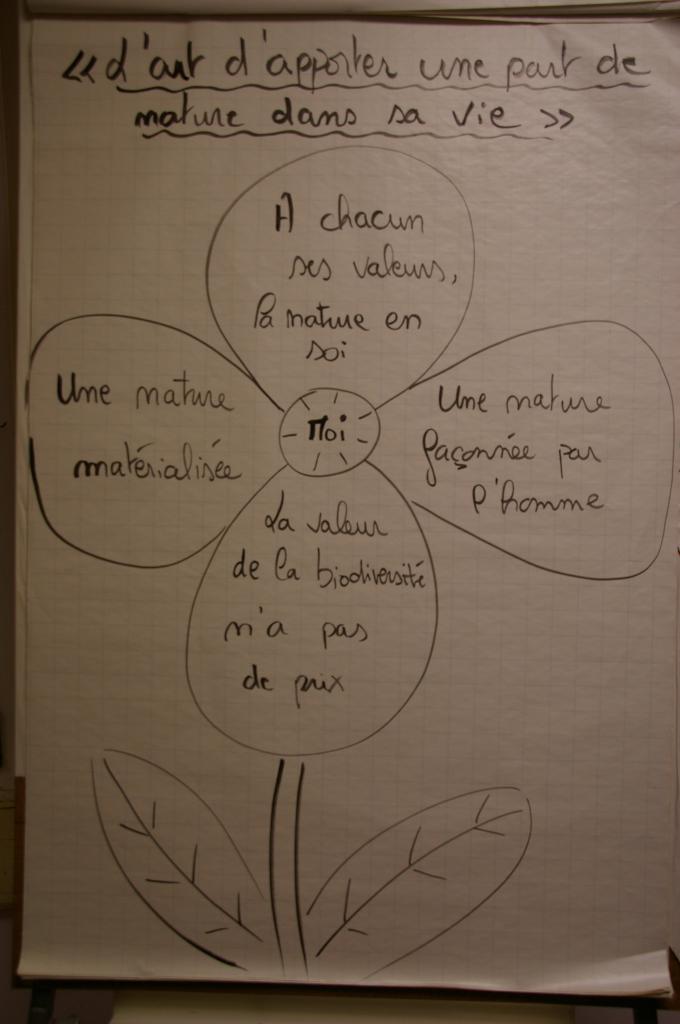 « L'art d'apporter une part de
nature dans sa vie »
A chacun
ses valeurs,
la nature en
soi
Une nature
matérialisée
Moi
Une nature
façonnée par
l'homme
La valeur
de la biodiversité
n'a pas
de prix